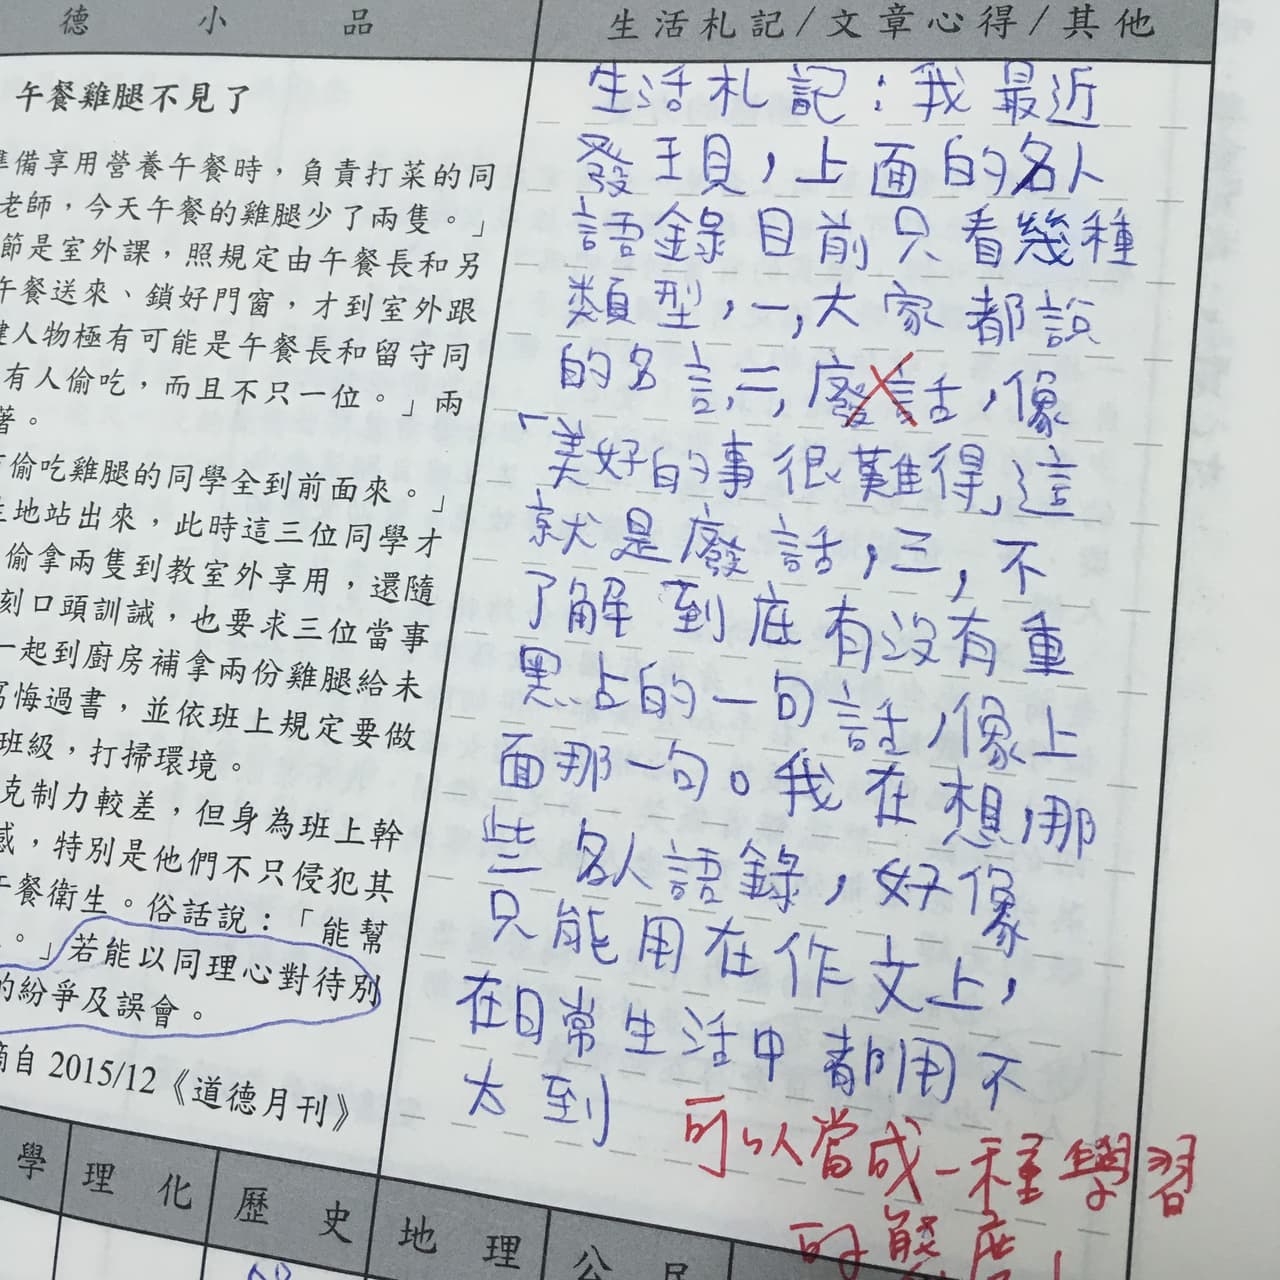 德 小 品
生活札記/文章心得/其他
午餐雞腿不見了
準備享用營養午餐時，負責打菜的同
老師，今天午餐的雞腿少了兩隻。」
節是室外課，照規定由午餐長和另
午餐送來、鎖好門窗，才到室外跟
鍵人物極有可能是午餐長和留守同
有人偷吃，而且不只一位。」兩
著。
偷吃雞腿的同學全到前面來。」
地站出來，此時這三位同學才
偷拿兩隻到教室外享用，還隨
刻口頭訓誡，也要求三位當事
一起到廚房補拿兩份雞腿給未
寫悔過書，並依班上規定要做
班級，打掃環境。
克制力較差，但身為班上幹
感，特別是他們不只侵犯其
午餐衛生。俗話說：「能幫
。」若能以同理心對待別
的紛爭及誤會。
摘自 2015/12《道德月刊》
生活札記：我最近
發現，上面的名人
語錄目前只看幾種
類型，一，大家都說
的名言，二，廢話，像
「美好的事很難得，這
就是廢話，三，不
了解到底有沒有重
點的一句話，像上
面那一句。我在想，那
些名人語錄，好像
只能用在作文上，
在日常生活中都用不
太到
可以當成一種學習
的態度！
學 理 化 歷 史 地 理 公 民